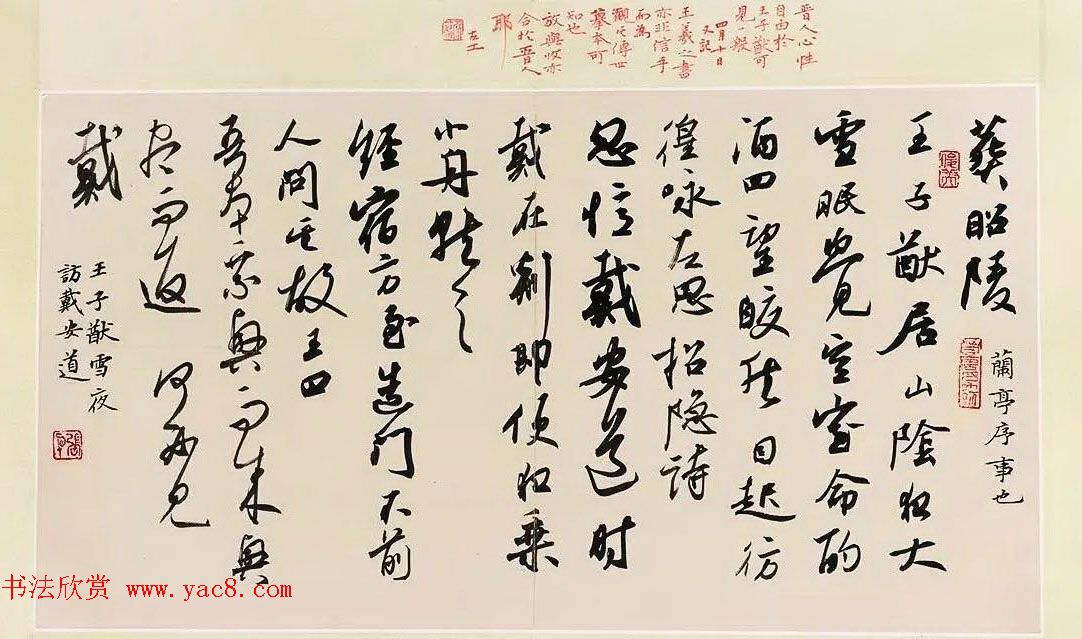 晋人心性
自由於
王子猷可
見一般
四月十日
又記
王羲之書
亦非信手
而為
觀其傳世
摹本可
知也
放與收亦
合於晋人
耶
葬昭陵
蘭亭序事也
王子猷居山陰夜大
雪眠覺空室命酌
酒四望皎然因起彷
徨咏左思招隐詩
忽憶戴安道时
戴在剡即便夜乘
小舟就之
經宿方至造门不前
人問其故王曰
吾本乘興而来興
尽而返何必見
戴
王子猷雪夜
訪戴安道
书法欣赏 www.yac8.com